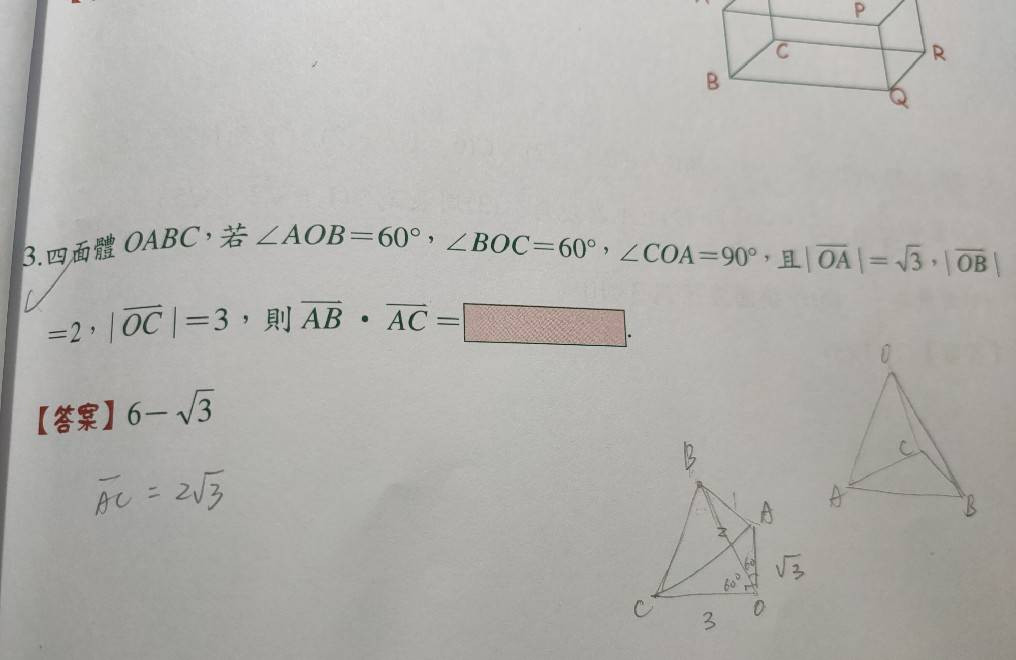 P
C
R
B
Q
3.四面體 OABC，若 ∠AOB=60°，∠BOC=60°，∠COA=90°，且|OA|=√3，|OB|
=2，|OC|=3，則 AB · AC=.
【答案】6-√3
AC = 2√3
O
C
A
B
B
1
A
2
60°
√3
C
O
3